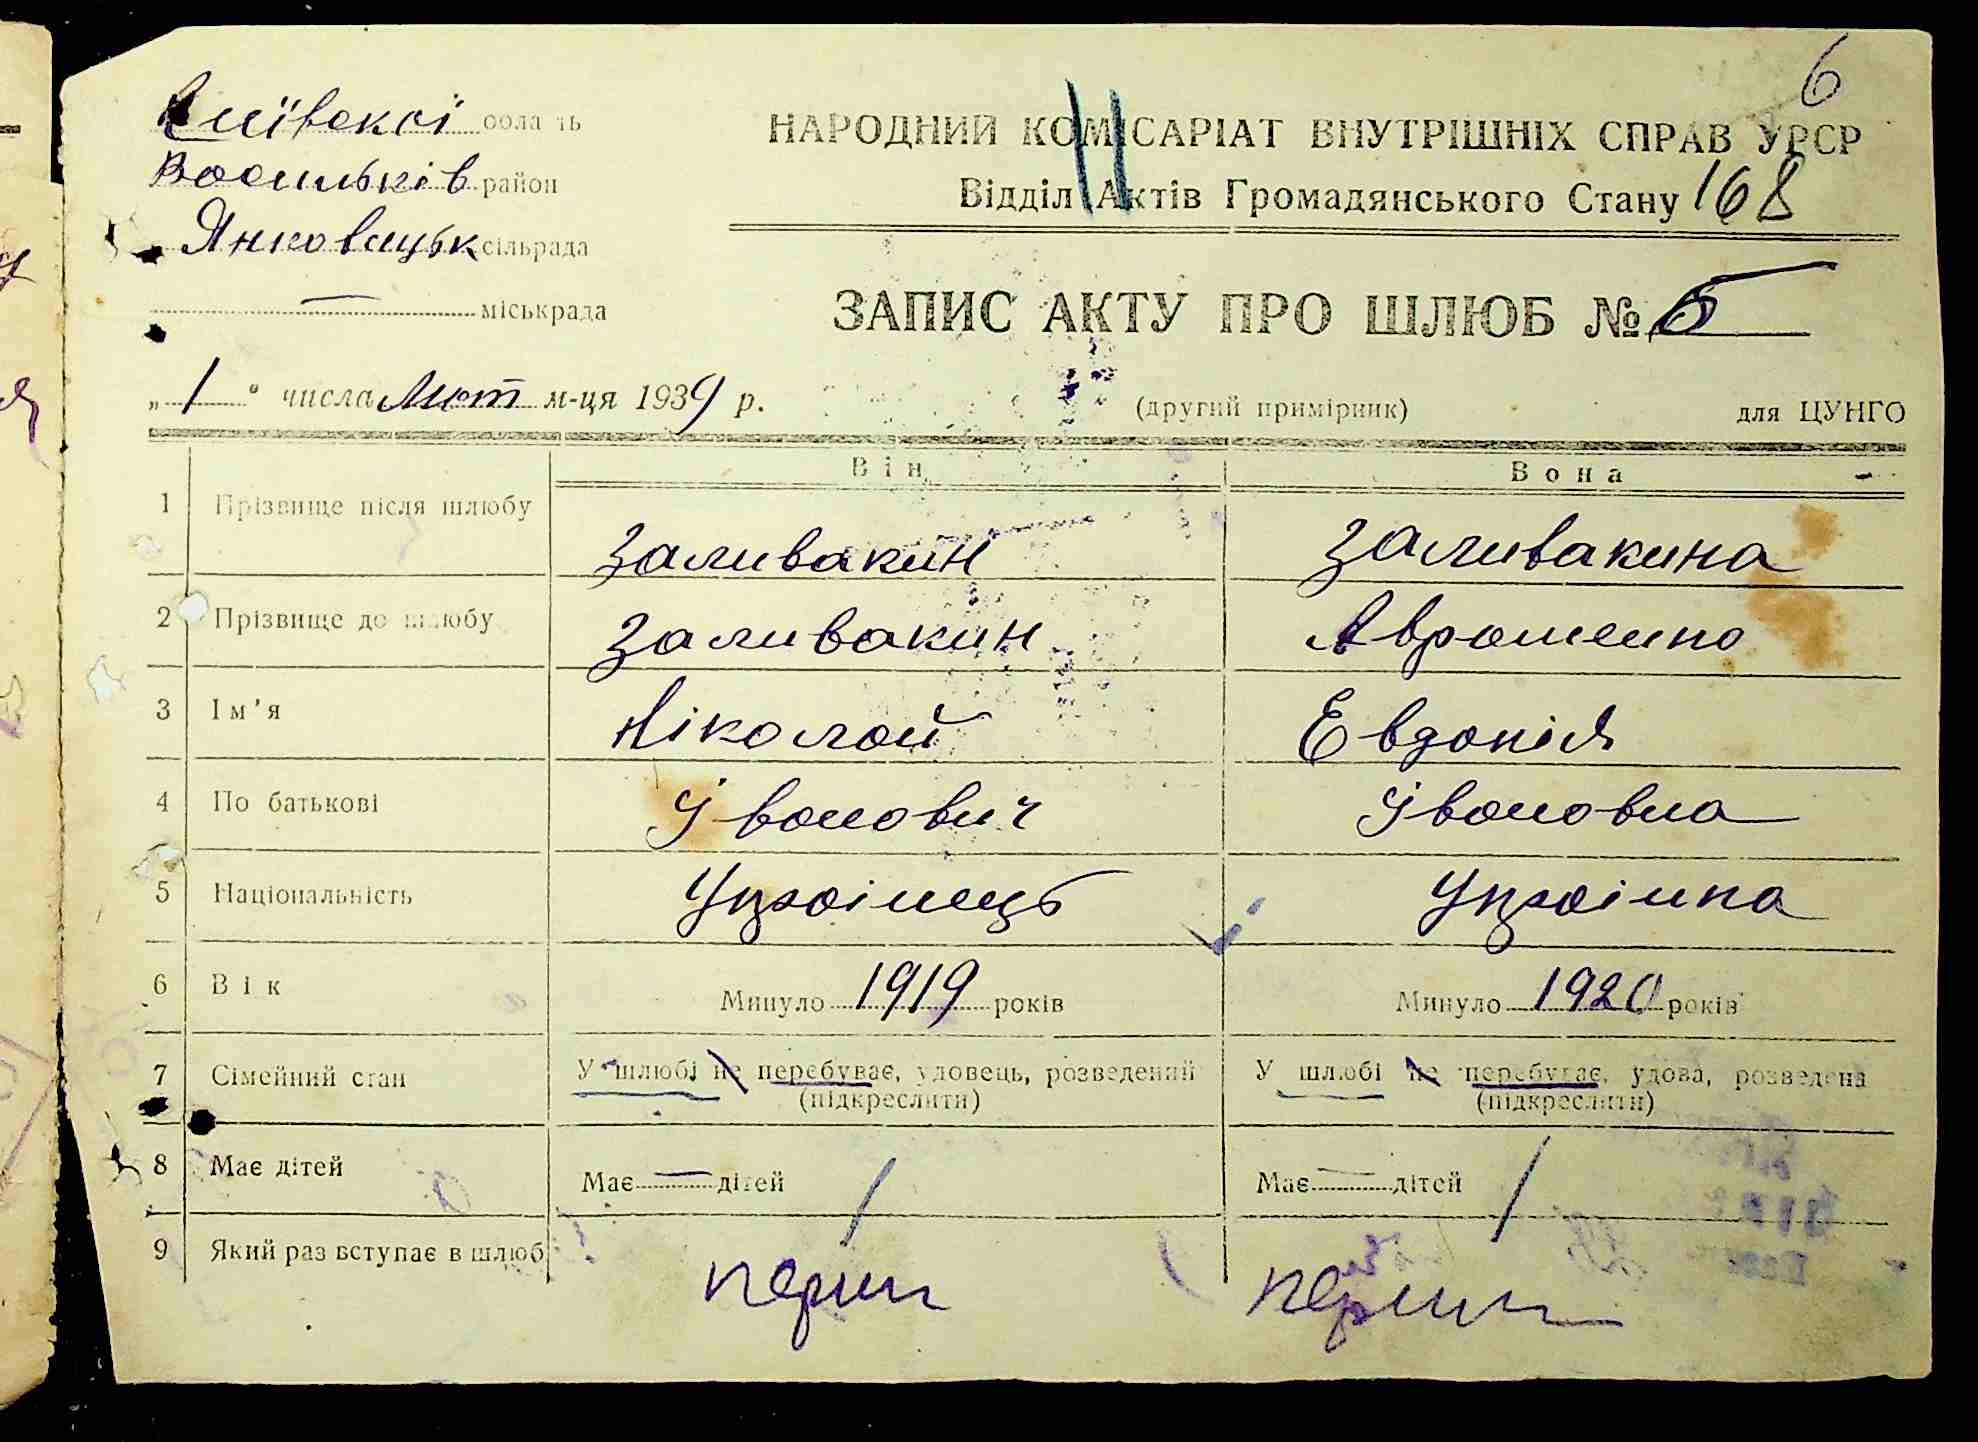 6
Київської область
НАРОДНИЙ КОМІСАРІАТ ВНУТРІШНІХ СПРАВ УРСР
Васильків район
Відділ Актів Громадянського Стану 168
Янковицьк сільрада
— міськрада
ЗАПИС АКТУ ПРО ШЛЮБ № 5
„1" числа Лют м-ця 1939 р.
(другий примірник) для ЦУНГО
Він Вона
1 Прізвище після шлюбу Заливакин Заливакина
2 Прізвище до шлюбу Заливакин Аврошенко
3 Ім'я Ніколай Евдокія
4 По батькові Іванович Івановна
5 Національність Українець Українка
6 Вік Минуло 1919 років Минуло 1920 років
7 Сімейний стан У шлюбі не перебуває, удовець, розведений У шлюбі не перебуває, удова, розведена
(підкреслити) (підкреслити)
8 Має дітей Має — дітей Має — дітей
9 Який раз вступає в шлюб
перший перший